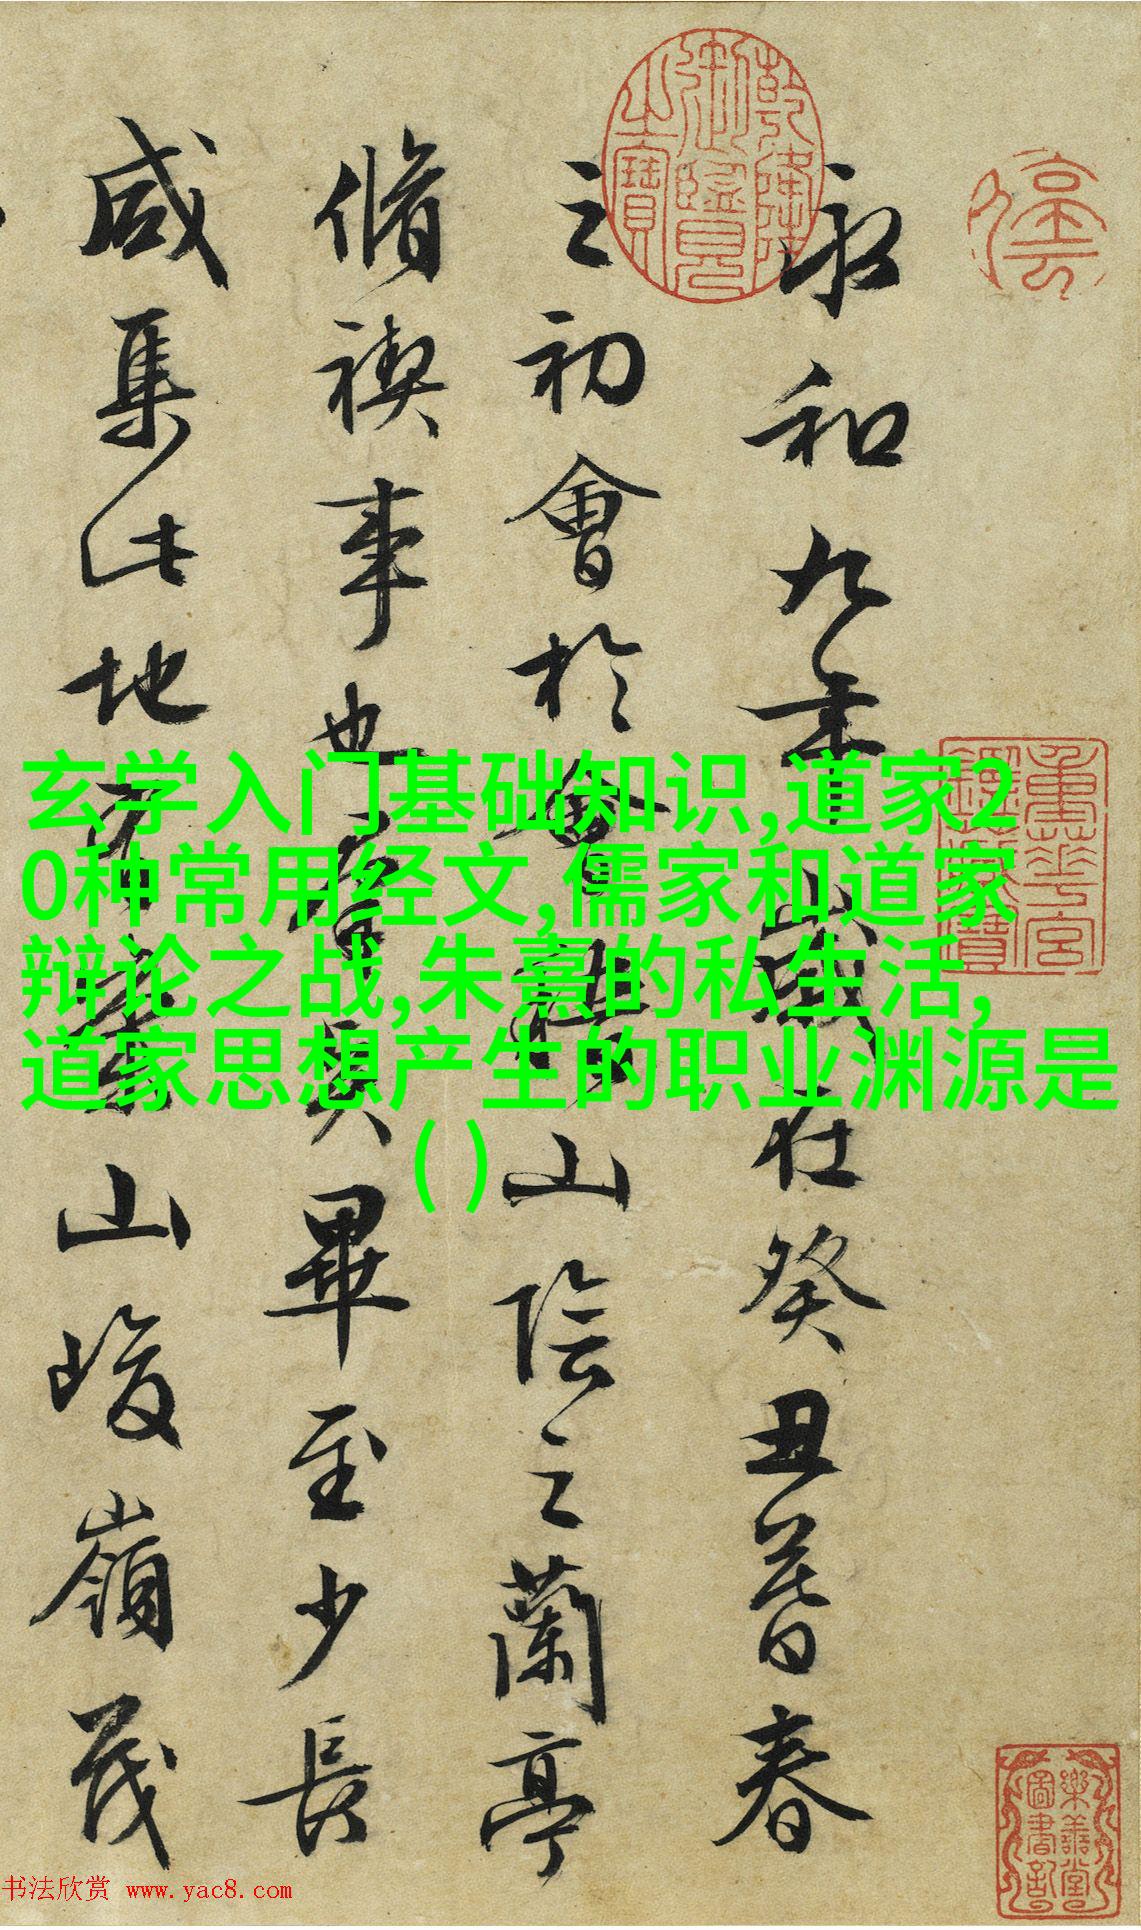 永和九年歲在癸丑暮春
之初會於會稽山陰之蘭亭
脩禊事也群賢畢至少長
咸集此地有崇山峻嶺茂
乾隆御覽之寶
玄学入门基础知识,道家2
0种常用经文,儒家和道家
辩论之战,朱熹的私生活,
道家思想产生的职业渊源是
()
书法欣赏 www.yac8.com